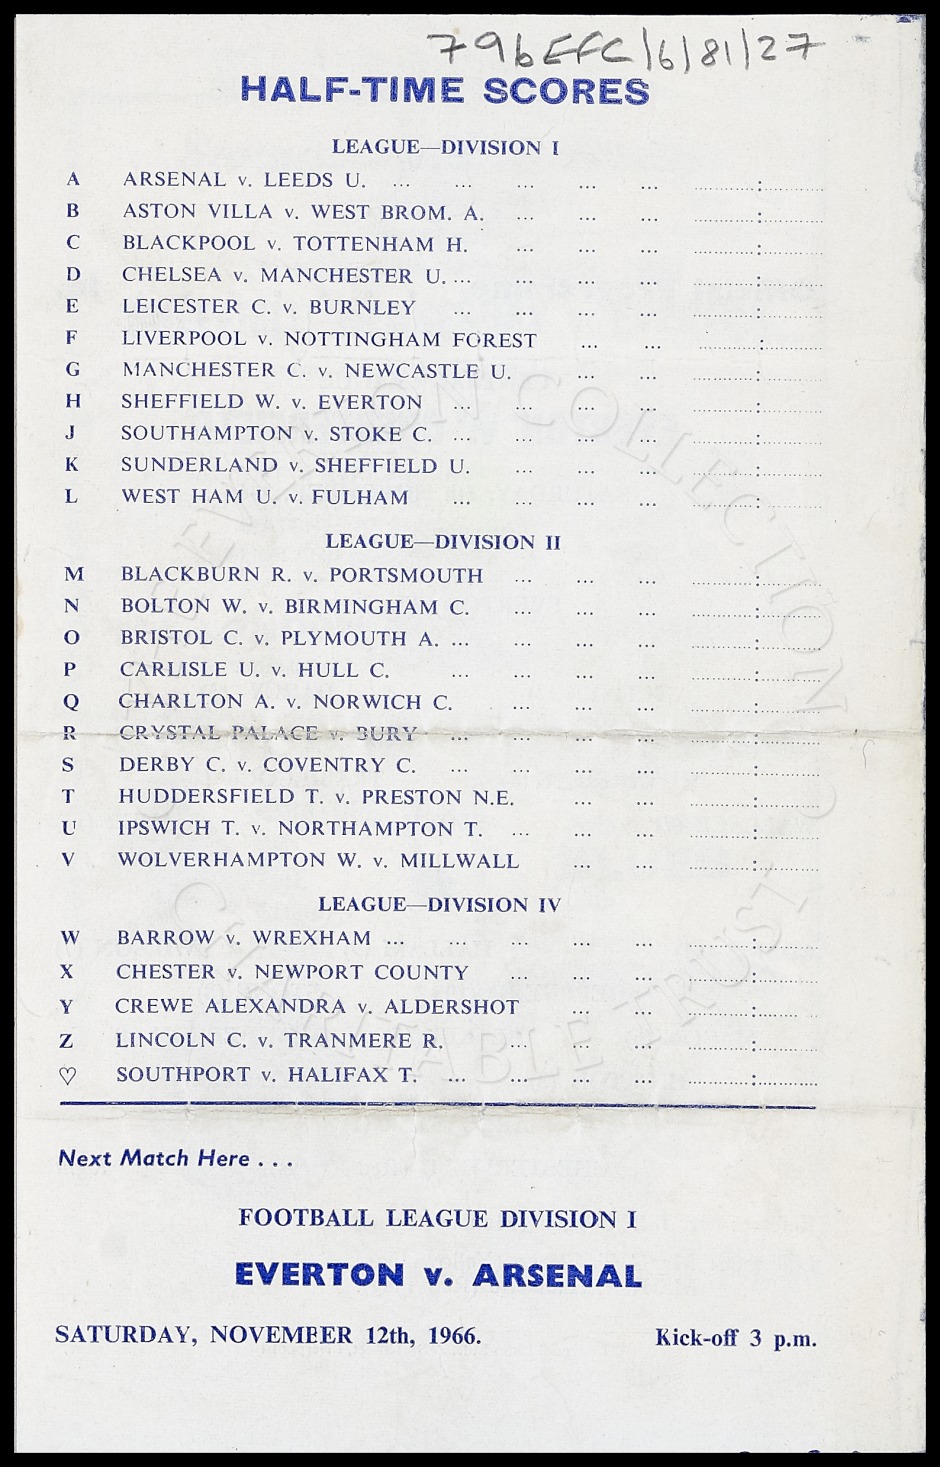 796EFC/6/81/27
HALF-TIME SCORES
LEAGUE—DIVISION I
A ARSENAL v. LEEDS U. ... ... ... ... ... ............:............
B ASTON VILLA v. WEST BROM. A. ... ... ... ............:............
C BLACKPOOL v. TOTTENHAM H. ... ... ... ............:............
D CHELSEA v. MANCHESTER U. ... ... ... ... ............:............
E LEICESTER C. v. BURNLEY ... ... ... ... ............:............
F LIVERPOOL v. NOTTINGHAM FOREST ... ... ............:............
G MANCHESTER C. v. NEWCASTLE U. ... ... ............:............
H SHEFFIELD W. v. EVERTON ... ... ... ... ............:............
J SOUTHAMPTON v. STOKE C. ... ... ... ... ............:............
K SUNDERLAND v. SHEFFIELD U. ... ... ... ............:............
L WEST HAM U. v. FULHAM ... ... ... ... ............:............
LEAGUE—DIVISION II
M BLACKBURN R. v. PORTSMOUTH ... ... ... ............:............
N BOLTON W. v. BIRMINGHAM C. ... ... ... ............:............
O BRISTOL C. v. PLYMOUTH A. ... ... ... ... ............:............
P CARLISLE U. v. HULL C. ... ... ... ... ............:............
Q CHARLTON A. v. NORWICH C. ... ... ... ............:............
R CRYSTAL PALACE v. BURY ... ... ... ... ............:............
S DERBY C. v. COVENTRY C. ... ... ... ... ............:............
T HUDDERSFIELD T. v. PRESTON N.E. ... ... ............:............
U IPSWICH T. v. NORTHAMPTON T. ... ... ... ............:............
V WOLVERHAMPTON W. v. MILLWALL ... ... ............:............
LEAGUE—DIVISION IV
W BARROW v. WREXHAM ... ... ... ... ... ............:............
X CHESTER v. NEWPORT COUNTY ... ... ... ............:............
Y CREWE ALEXANDRA v. ALDERSHOT ... ... ............:............
Z LINCOLN C. v. TRANMERE R. ... ... ... ............:............
♡ SOUTHPORT v. HALIFAX T. ... ... ... ... ............:............
Next Match Here . . .
FOOTBALL LEAGUE DIVISION I
EVERTON v. ARSENAL
SATURDAY, NOVEMBER 12th, 1966. Kick-off 3 p.m.
EVERTON COLLECTION
CHARITABLE TRUST